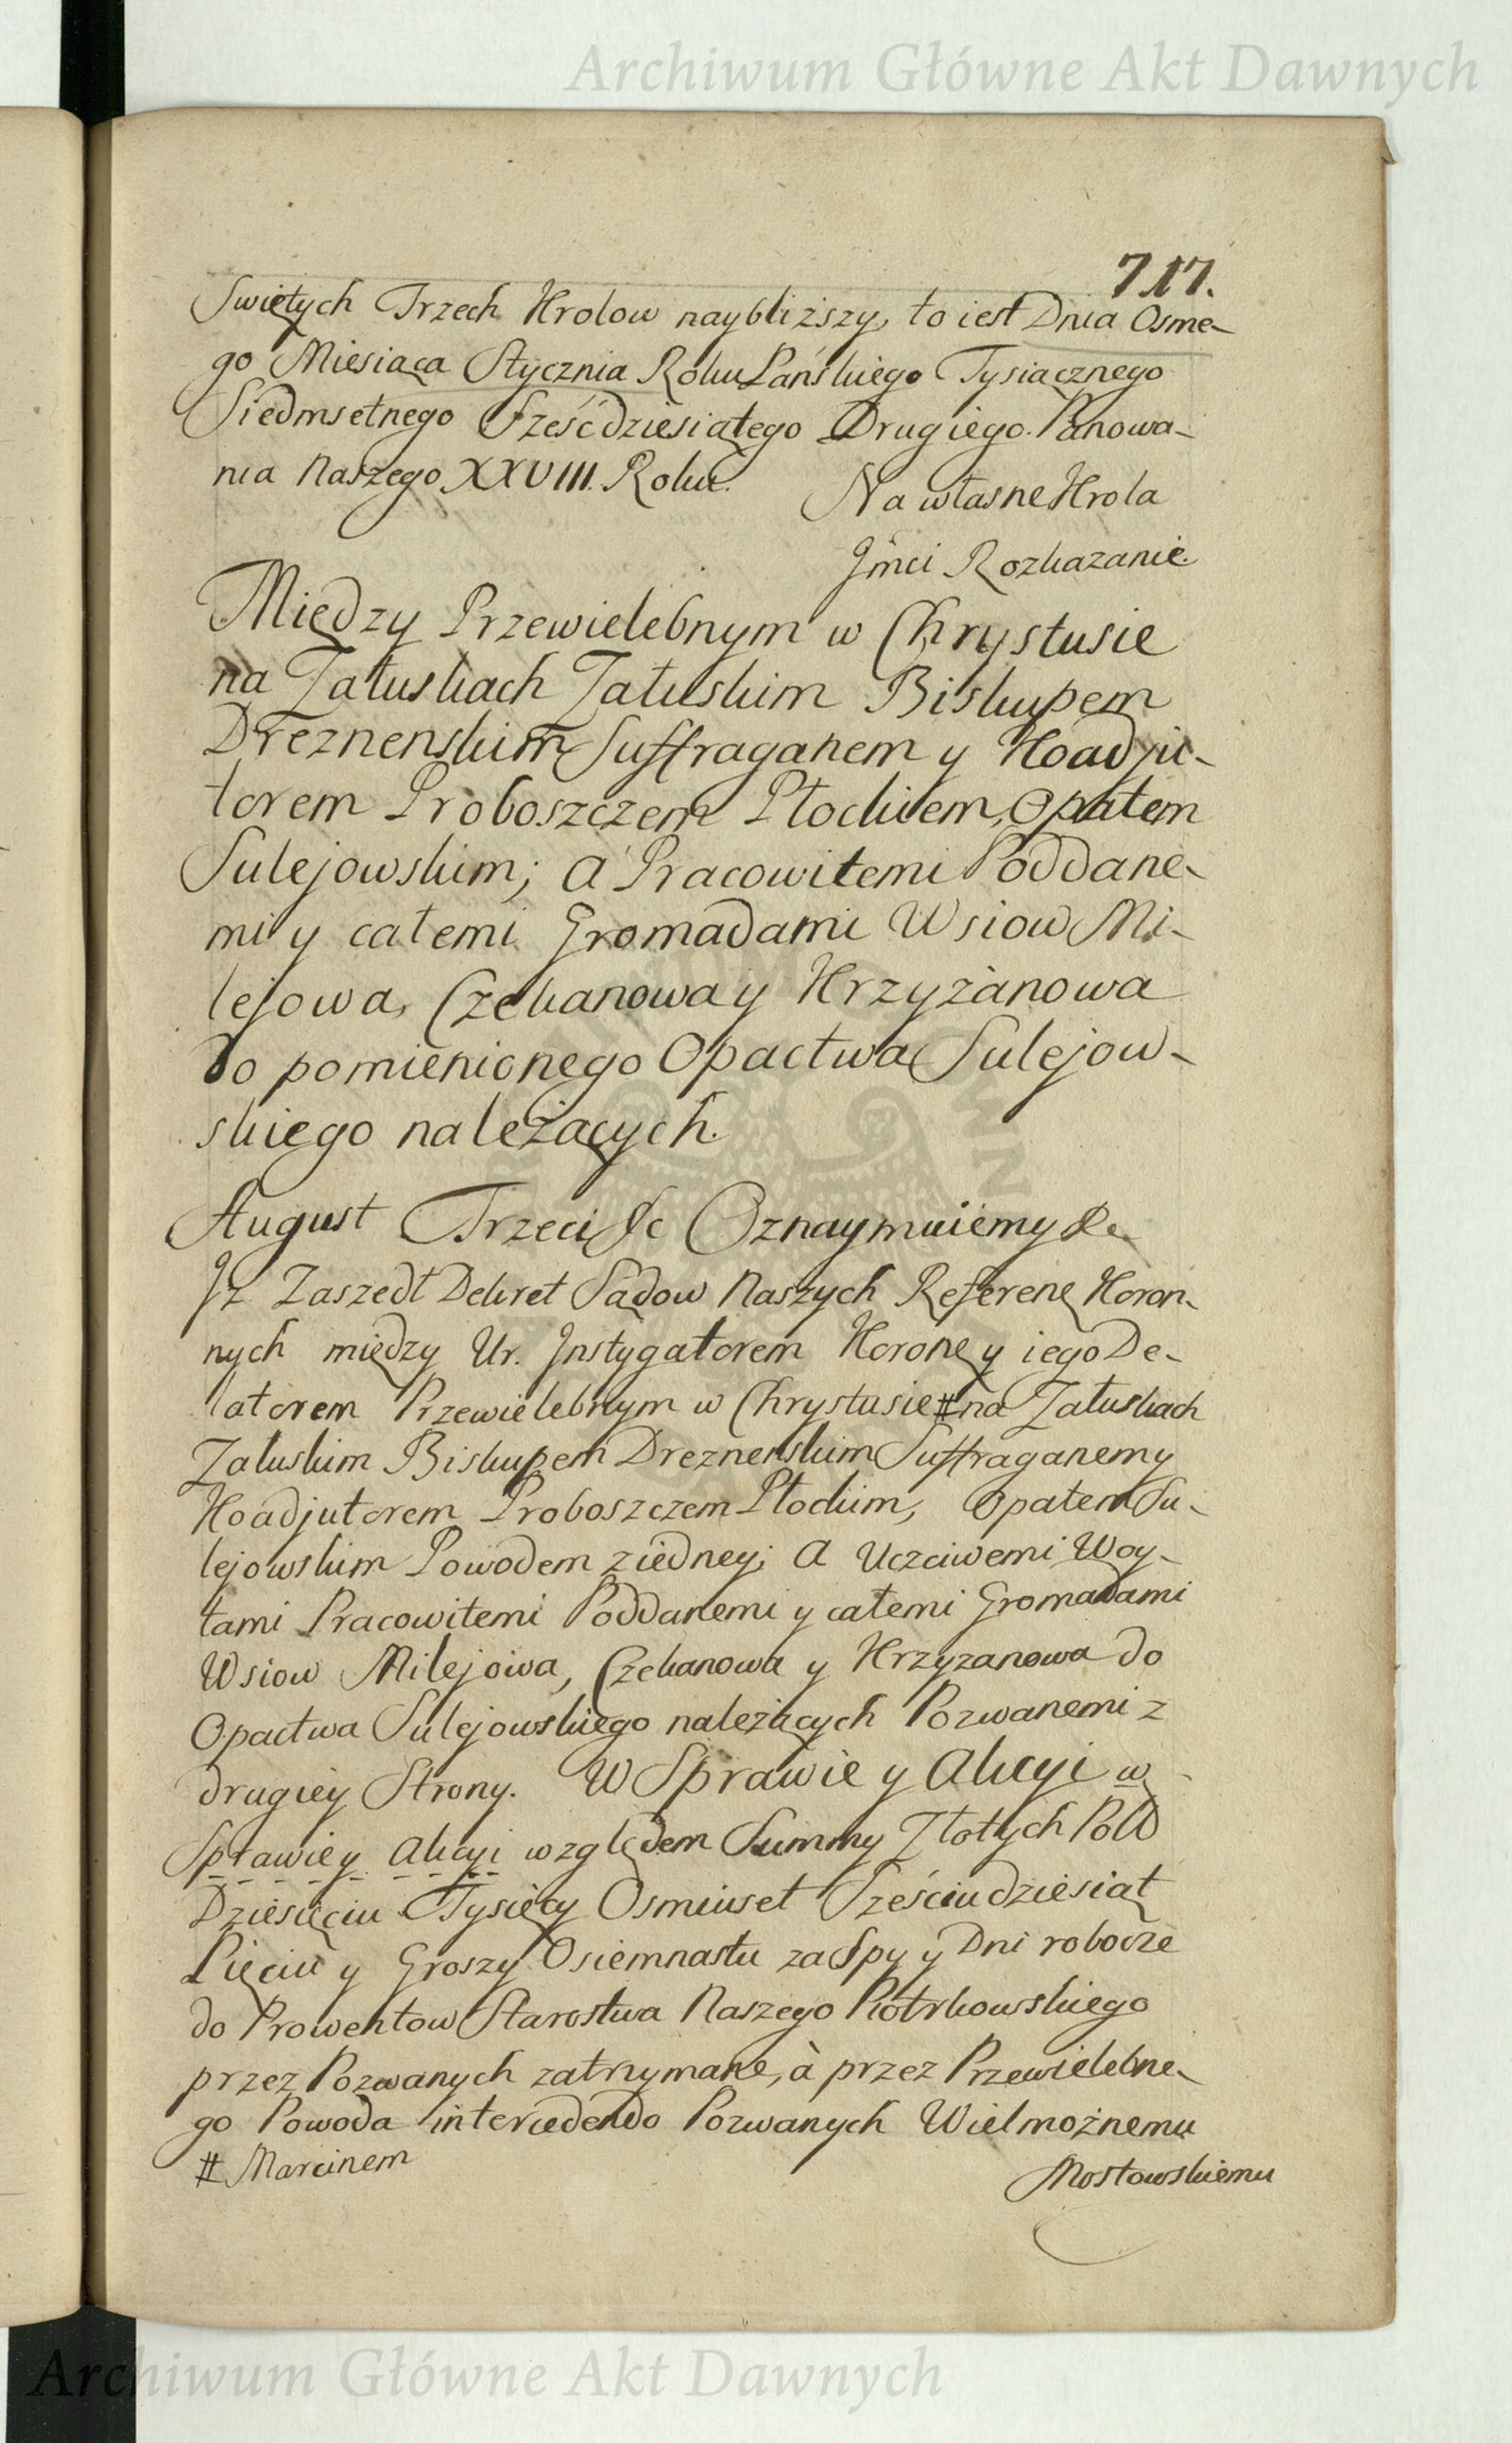 Archiwum Główne Akt Dawnych
717.
Swiętych Trzech Krolow naybliższy, to iest Dnia Osme-
go Miesiąca Stycznia Roku Pańskiego Tysiącznego
Siedmsetnego Sześćdziesiątego Drugiego. Panowa-
nia Naszego XXVIII. Roku.
Na własne Krola
Jmci Rozkazanie.
Między Przewielebnym w Chrystusie
na Załuskach Załuskim Biskupem
Drezneńskim Suffraganem y Koadju-
torem Proboszczem Płockiem, Opatem
Sulejowskim; a Pracowitemi Poddane-
mi y całemi Gromadami Wsiow Mi-
lejowa, Czekanowa y Krzyżanowa
do pomienionego Opactwa Sulejow-
skiego należących.
August Trzeci &c Oznaymuiemy &c.
Jż Zaszedł Dekret Sądow Naszych Referen: Koron-
nych między Ur. Jnstygatorem Koron: y iego De-
latorem Przewielebnym w Chrystusie # na Załuskach
Załuskim Biskupem Drezneńskim Suffraganem y
Koadjutorem Proboszczem Płockim, Opatem Su-
lejowskim Powodem z iedney; a Uczciwemi Woy-
tami Pracowitemi Poddanemi y całemi Gromadami
Wsiow Milejowa, Czekanowa y Krzyzanowa do
Opactwa Sulejowskiego należących Pozwanemi z
drugiey Strony. W Sprawie y Akcyi w
Sprawie y Akcyi względem Summy Złotych Pols
Dziesięciu Tysięcy Osmiuset Sześciudziesiąt
Pięciu y Groszy Osiemnastu za Spy y Dni robocze
do Prowentow Starostwa Naszego Piotrkowskiego
przez Pozwanych zatrzymane, à przez Przewielebne-
go Powoda intercedendo Pozwanych Wielmożnemu
# Marcinem
Mostowskiemu
Archiwum Główne Akt Dawnych